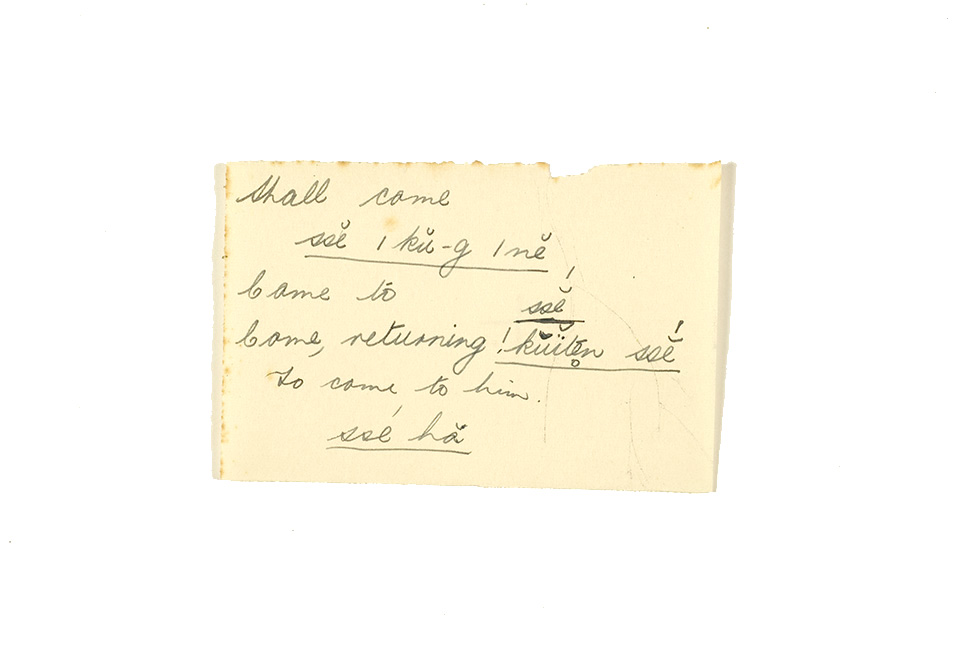 shall come
ssĕ ǀkŭ-g ǀnĕ
Come to ssĕ
Come, returning !kŭïtẹn ssĕ!
To come to him.
ssé hă